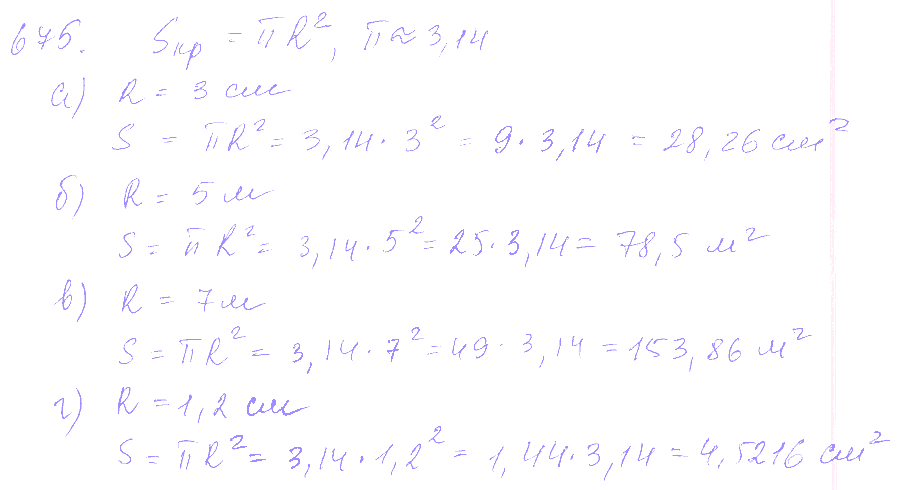 675. Sкр = πR², π ≈ 3,14
а) R = 3 см
S = πR² = 3,14 · 3² = 9 · 3,14 = 28,26 см²
б) R = 5 м
S = πR² = 3,14 · 5² = 25 · 3,14 = 78,5 м²
в) R = 7 м
S = πR² = 3,14 · 7² = 49 · 3,14 = 153,86 м²
г) R = 1,2 см
S = πR² = 3,14 · 1,2² = 1,44 · 3,14 = 4,5216 см²